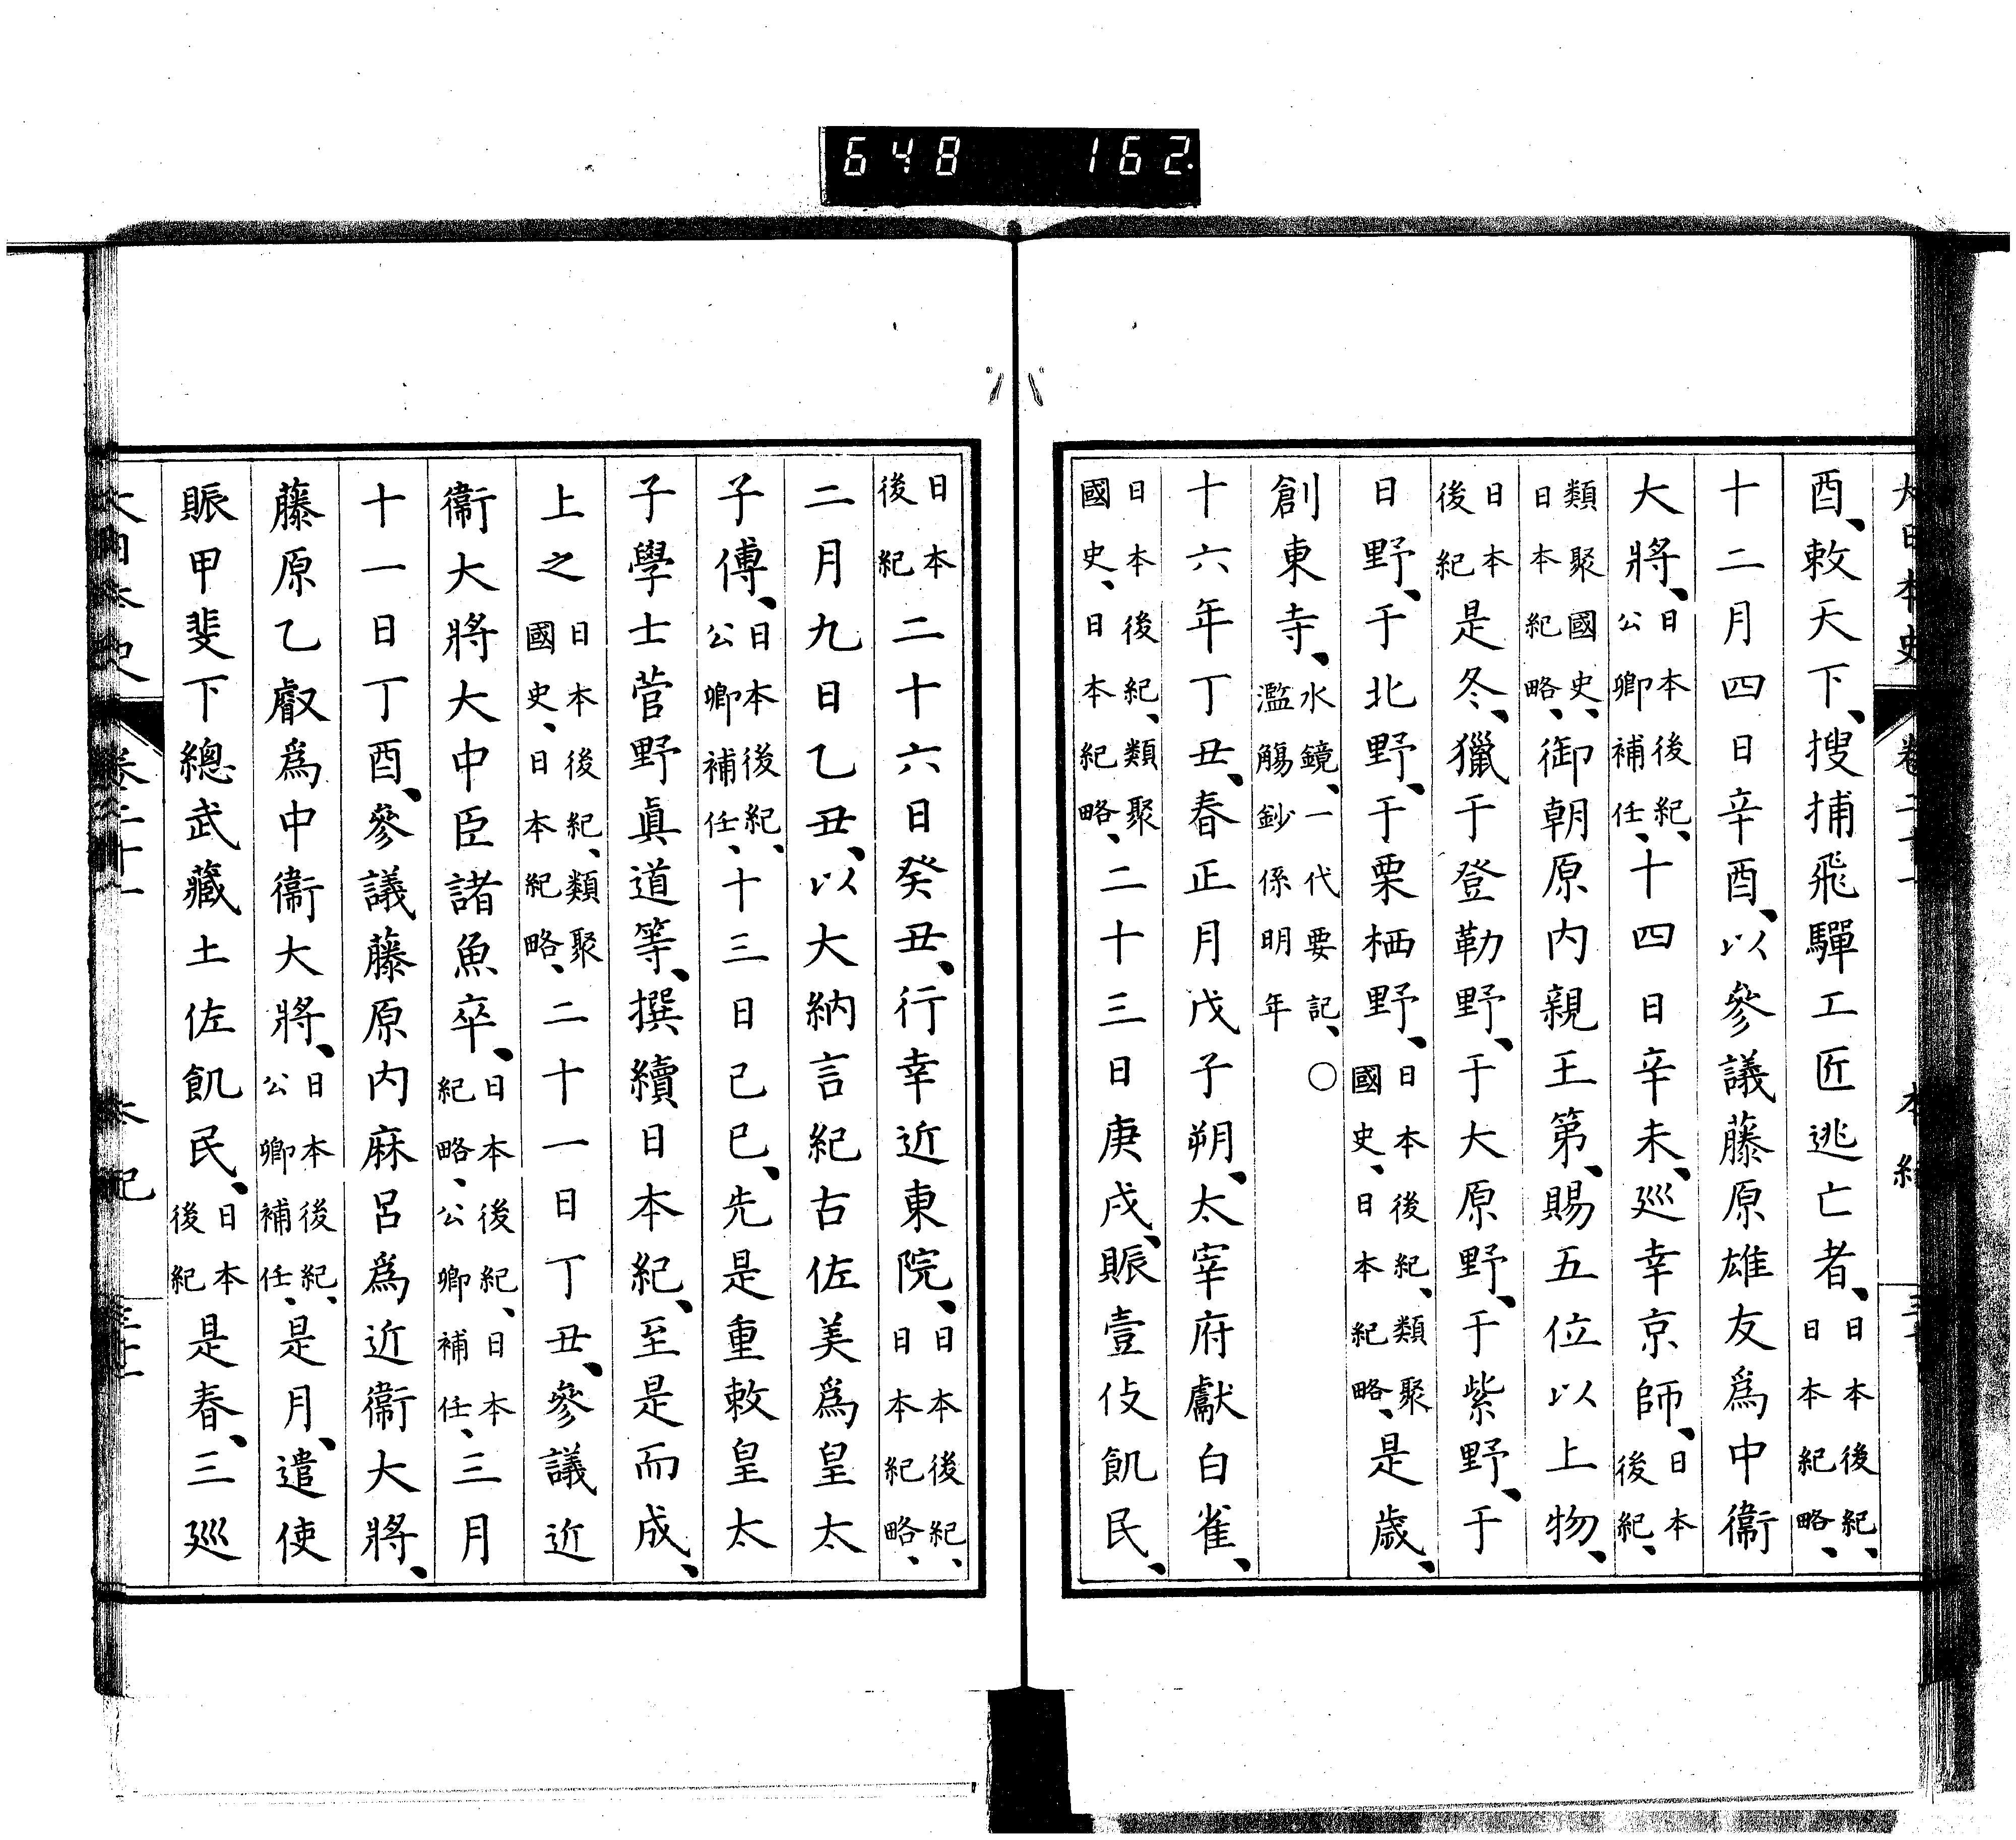 648 162
酉、敕天下、搜捕飛驒工匠逃亡者、日本後紀、日本紀略、
十二月四日辛酉、以參議藤原雄友爲中衞
大將、日本後紀、公卿補任、十四日辛未、巡幸京師、日本後紀、
類聚國史、日本紀略、御朝原内親王第、賜五位以上物、
日本後紀是冬、獵于登勒野、于大原野、于紫野、于
日野、于北野、于栗栖野、日本後紀、類聚國史、日本紀略、是歲、
創東寺、水鏡、一代要記、○濫觴鈔係明年
十六年丁丑、春正月戊子朔、太宰府獻白雀、
日本後紀、類聚國史、日本紀略、二十三日庚戌、賑壹伎飢民、
日本後紀二十六日癸丑、行幸近東院、日本後紀、日本紀略、
二月九日乙丑、以大納言紀古佐美爲皇太
子傅、日本後紀、公卿補任、十三日己巳、先是重敕皇太
子學士菅野眞道等、撰續日本紀、至是而成、
上之日本後紀、類聚國史、日本紀略、二十一日丁丑、參議近
衞大將大中臣諸魚卒、日本後紀、日本紀略、公卿補任、三月
十一日丁酉、參議藤原内麻呂爲近衞大將、
藤原乙叡爲中衞大將、日本後紀、公卿補任、是月、遣使
賑甲斐下總武藏土佐飢民、日本後紀是春、三巡